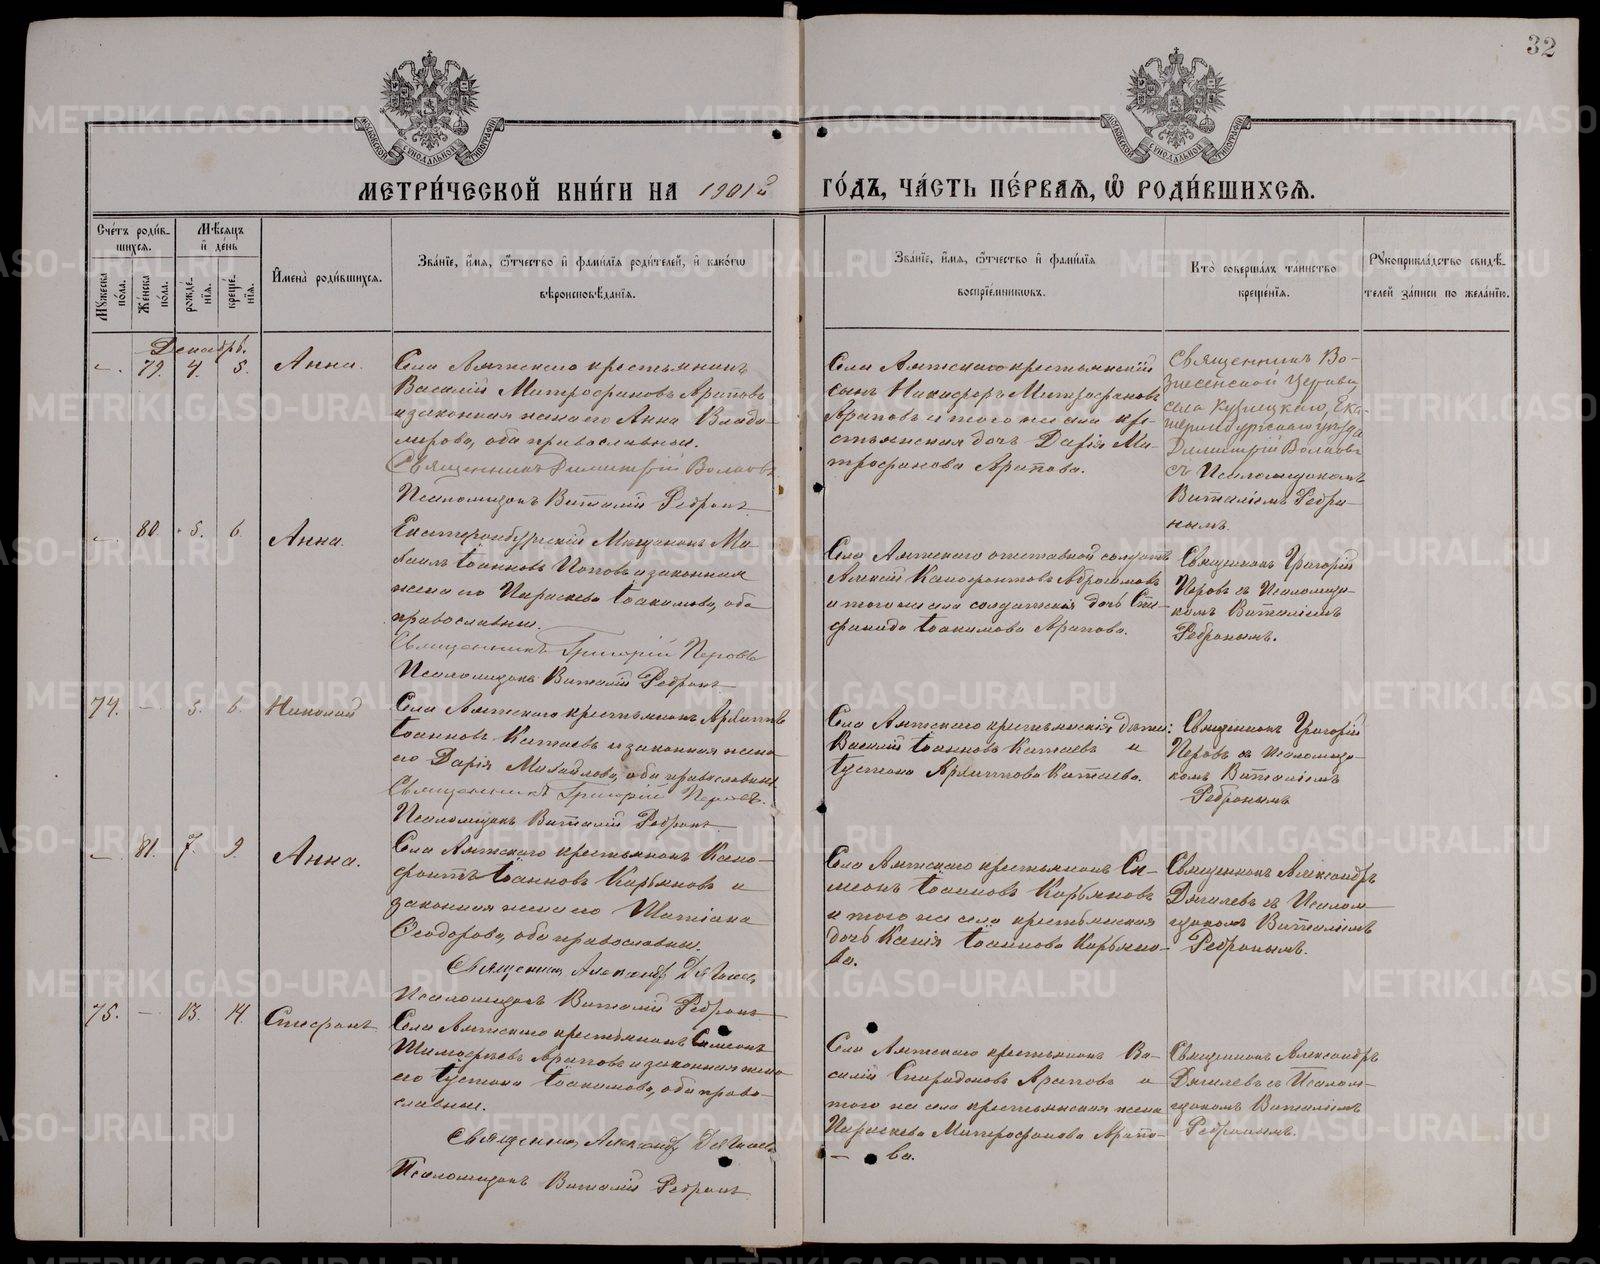 32
МОСКОВСКОЙ СѴНОДАЛЬНОЙ ТИПОГРАФІИ
МОСКОВСКОЙ СѴНОДАЛЬНОЙ ТИПОГРАФІИ
МЕТРИ́ЧЕСКОЙ КНИ́ГИ НА 1901й ГО́ДЪ, ЧА́СТЬ ПЕ́РВАѦ, Ѡ҆ РОДИ́ВШИХСѦ.
Сче́тъ роди́в-
шихсѧ.
Мꙋ́жеска по́ла.
Же́нска по́ла.
Мѣ́сѧцъ
и҆ де́нь
рожде́-
нїѧ.
креще́-
нїѧ.
И҆мена̀ роди́вшихсѧ.
Зва́нїе, и҆́мѧ, ѻ҆́тчество и҆ фамі́лїѧ роди́телей, и҆ како́гѡ
вѣроисповѣ́данїѧ.
Зва́нїе, и҆́мѧ, ѻ҆́тчество и҆ фамі́лїѧ
воспрїе́мниковъ.
Кто̀ соверша́лъ та́инство
креще́нїѧ.
Рꙋкоприкла́дство свидѣ́-
телей за́писи по жела́нїю.
Декабрь.
– 79. 4. 5. Анна.
Села Аятскаго крестьянинъ
Василій Митрофановъ Араповъ
и законная жена его Анна Влади-
мирова, оба православные.
Священникъ Димитрій Волковъ
Псаломщикъ Виталій Ребринъ
Села Аятскаго крестьянскій
сынъ Никифоръ Митрофановъ
Араповъ и того же села кре-
стьянская дочь Дарія Ми-
трофанова Арапова.
Священникъ Во-
знесенской церкви
села Кузнецкаго, Ека-
теринбургскаго уѣзда
Димитрій Волковъ
съ Псаломщикомъ
Виталіемъ Ребри-
нымъ.
– 80 5. 6. Анна.
Екатеринбургскій Мѣщанинъ Ми-
хаилъ Іоанновъ Поповъ и законная
жена его Параскева Іоакимова, оба
православные.
Священникъ Григорій Перовъ
Псаломщикъ Виталій Ребринъ
Села Аятскаго отставной солдатъ
Алексій Ксенофонтовъ Абросимовъ
и того же села солдатская дочь Сте-
фанида Іоакимова Арапова.
Священникъ Григорій
Перовъ съ Псаломщи-
комъ Виталіемъ
Ребринымъ.
74. – 5. 6. Николай
Села Аятскаго крестьянинъ Архиппъ
Іоанновъ Катаевъ и законная жена
его Дарія Михайлова, оба православные
Священникъ Григорій Перовъ.
Псаломщикъ Виталій Ребринъ
Села Аятскаго крестьянскія дѣти:
Василій Іоанновъ Катаевъ и
Іустина Архиппова Катаева.
Священникъ Григорій
Перовъ съ Псаломщи-
комъ Виталіемъ
Ребринымъ
– 81. 7. 9. Анна.
Села Аятскаго крестьянинъ Ксено-
фонтъ Іоанновъ Карьяновъ и
законная жена его Татіана
Ѳеодорова, оба православные.
Священникъ Александръ Дягилевъ
Псаломщикъ Виталій Ребринъ
Села Аятскаго крестьянинъ Си-
меонъ Іоанновъ Карьяновъ
и того же села крестьянская
дочь Ксенія Іоаннова Карьяно-
ва.
Священникъ Александръ
Дягилевъ съ Псалом-
щикомъ Виталіемъ
Ребринымъ.
75. – 13. 14. Стефанъ
Села Аятскаго крестьянинъ Симеонъ
Тимофеевъ Араповъ и законная жена
его Іустина Іоакимова, оба право-
славные.
Священникъ Александръ Дягилевъ
Псаломщикъ Виталій Ребринъ
Села Аятскаго крестьянинъ Ва-
силій Спиридоновъ Араповъ и
того же села крестьянская жена
Параскева Митрофанова Арапо-
ва.
Священникъ Александръ
Дягилевъ съ Псалом-
щикомъ Виталіемъ
Ребринымъ.
METRIKI.GASO-URAL.RU